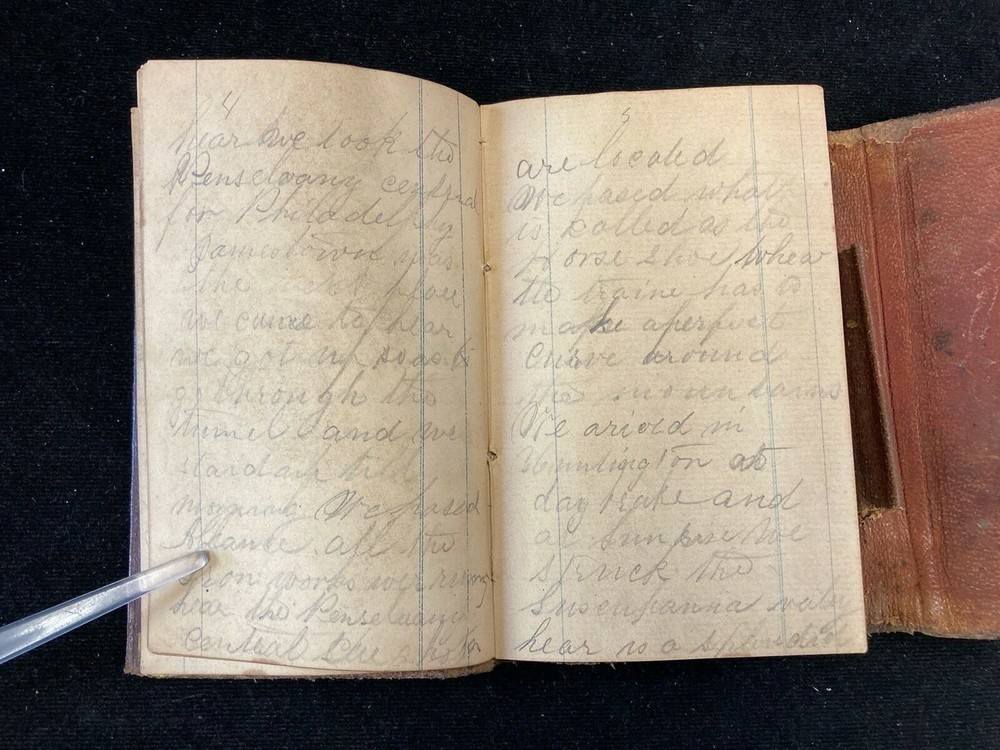 4
hear we took the
Penselvany central
for Philadelphy
Jamestown was
the next place
we came to hear
we got up so as to
go through the
tunnel and we
stard up till
morning We pased
Altaance all the
Iron works wer runing
hear the Penselvany
central
5
are located
We pased what
is called as the
Horse Shoe whear
the traine has to
make a perfect
Curve around
the mountains
We arived in
Huntington at
day brake and
at sun rise We
struck the
Suscuhanna valey
hear is a splended